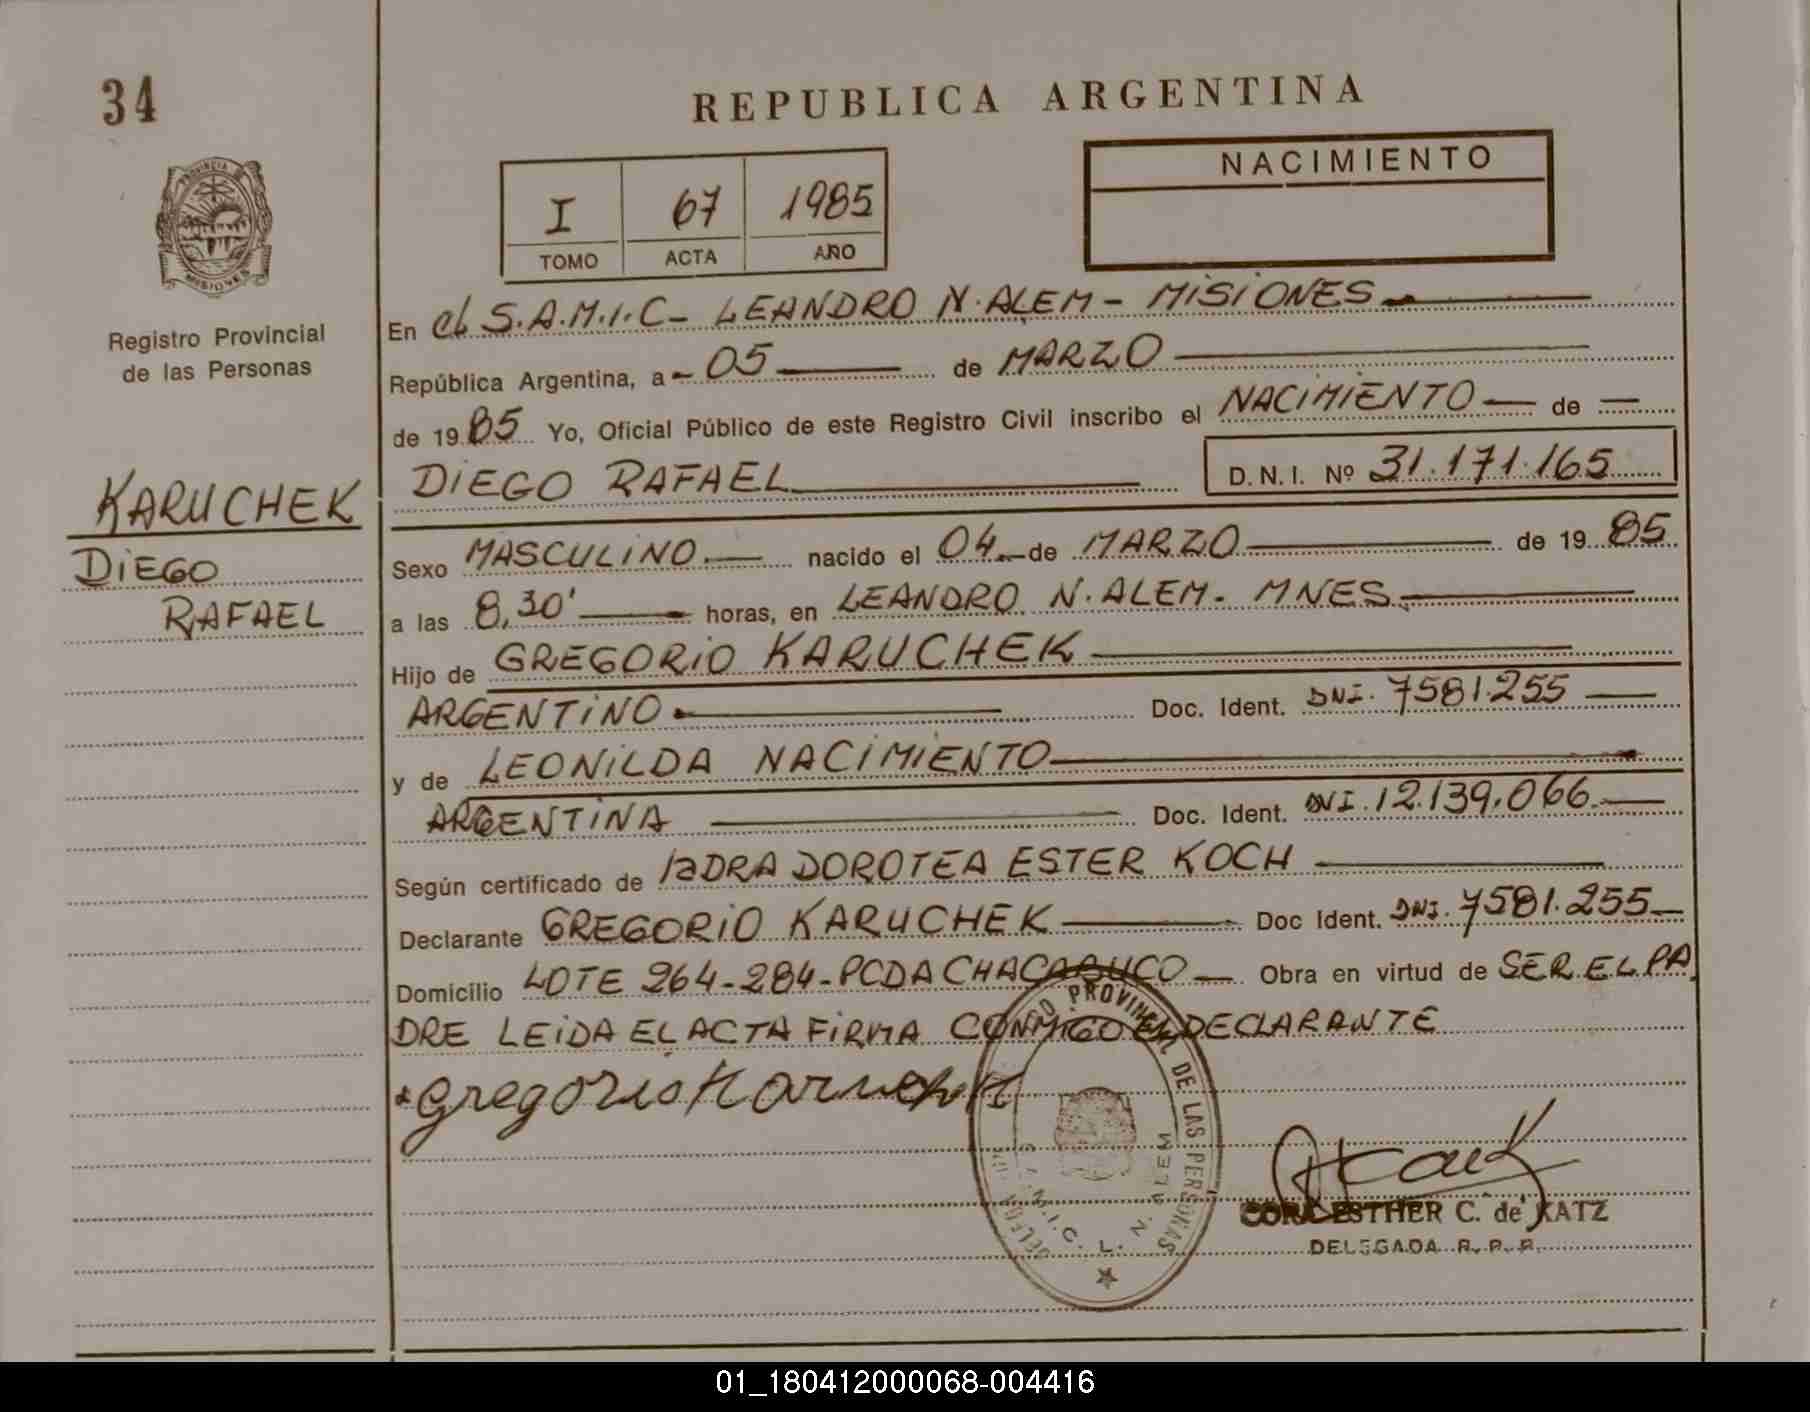 34
REPUBLICA ARGENTINA
PROVINCIA DE
MISIONES
Registro Provincial
de las Personas
I 67 1985
TOMO ACTA AÑO
NACIMIENTO
En el S.A.M.I.C- LEANDRO N. ALEM - MISIONES
República Argentina, a - 05 de MARZO
de 19 85 Yo, Oficial Público de este Registro Civil inscribo el NACIMIENTO de
DIEGO RAFAEL D.N.I. Nº 31.171.165
KARUCHEK
DIEGO
RAFAEL
Sexo MASCULINO nacido el 04 de MARZO de 19 85
a las 8,30' horas, en LEANDRO N. ALEM. MNES
Hijo de GREGORIO KARUCHEK
ARGENTINO Doc. Ident. DNI. 7581.255
y de LEONILDA NACIMIENTO
ARGENTINA Doc. Ident. DNI. 12.139.066
Según certificado de DRA DOROTEA ESTER KOCH
Declarante GREGORIO KARUCHEK Doc Ident. DNI. 7581.255
Domicilio LOTE 264-284-PCDA CHACABUCO Obra en virtud de SER EL PA
DRE LEIDA EL ACTA FIRMA CONMIGO EL DECLARANTE
Gregorio Karuchek
PROVINCIAL DE LAS PERSONAS
S.A.M.I.C. L. N. ALEM
CORA ESTHER C. de KATZ
DELEGADA R. P. P.
01_180412000068-004416